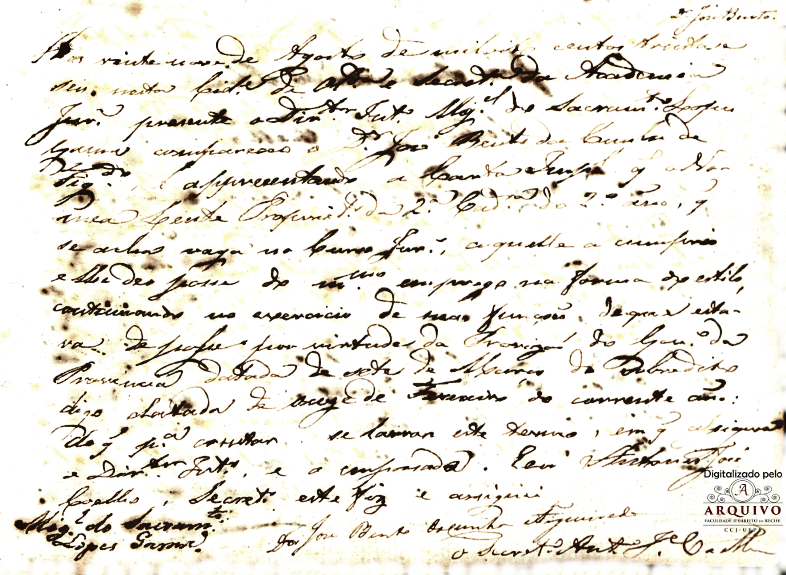 Dr José Bento.
Aos vinte nove de Agosto de mil oito centos trinta e
seis nesta Cide de Olinda e Secretª da Academia
Jurª presente o Dirtor Intº Migel do Sacramtº Lopes
Gama compareceo o Dr José Bento da Cunha de
Figdo, e appresentando a Carta Impal q o No-
mea Lente Propriet. da 2ª Cadrª do 2º anno, q
se achas vaga no Curso Jurº, a quelle a cumprio
e lhe deo posse do mmo emprego na forma do estilo,
continuando no exercicio de suas funçoens, de que esta-
va de posse por virtudes da do Govº da
Provincia datada de sete de Março do
digo datada de onze de Fevereiro do corrente anno:
do q pª constar se lavrou este termo, em q assignou
o Dirtor Intº, e o empossado. E eu Antonio José
Coelho, Secretº este fiz e assignei
Migel do Sacramtº
Lopes Gama
Dr José Bento da Cunha Figueiredo
O Secretº Antº Je Coelho
Digitalizado pelo
A
ARQUIVO
FACULDADE DE DIREITO DO RECIFE
CCJ-UFPE